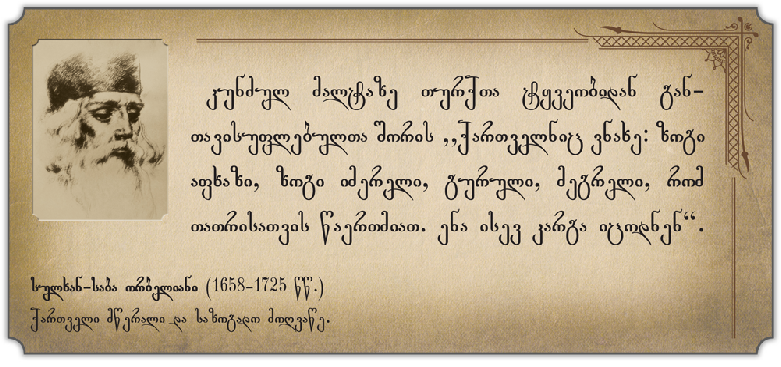 კუნძულ მალტაზე თურქთა ტყვეობიდან გან-
თავისუფლებულთა შორის ,,ქართველნიც ვნახე: ზოგი
აფხაზი, ზოგი იმერელი, გურული, მეგრელი, რომ
თათრისათვის წაერთმიათ. ენა ისევ კარგა იცოდნენ“.
სულხან-საბა ორბელიანი (1658-1725 წწ.)
ქართველი მწერალი და საზოგადო მოღვაწე.